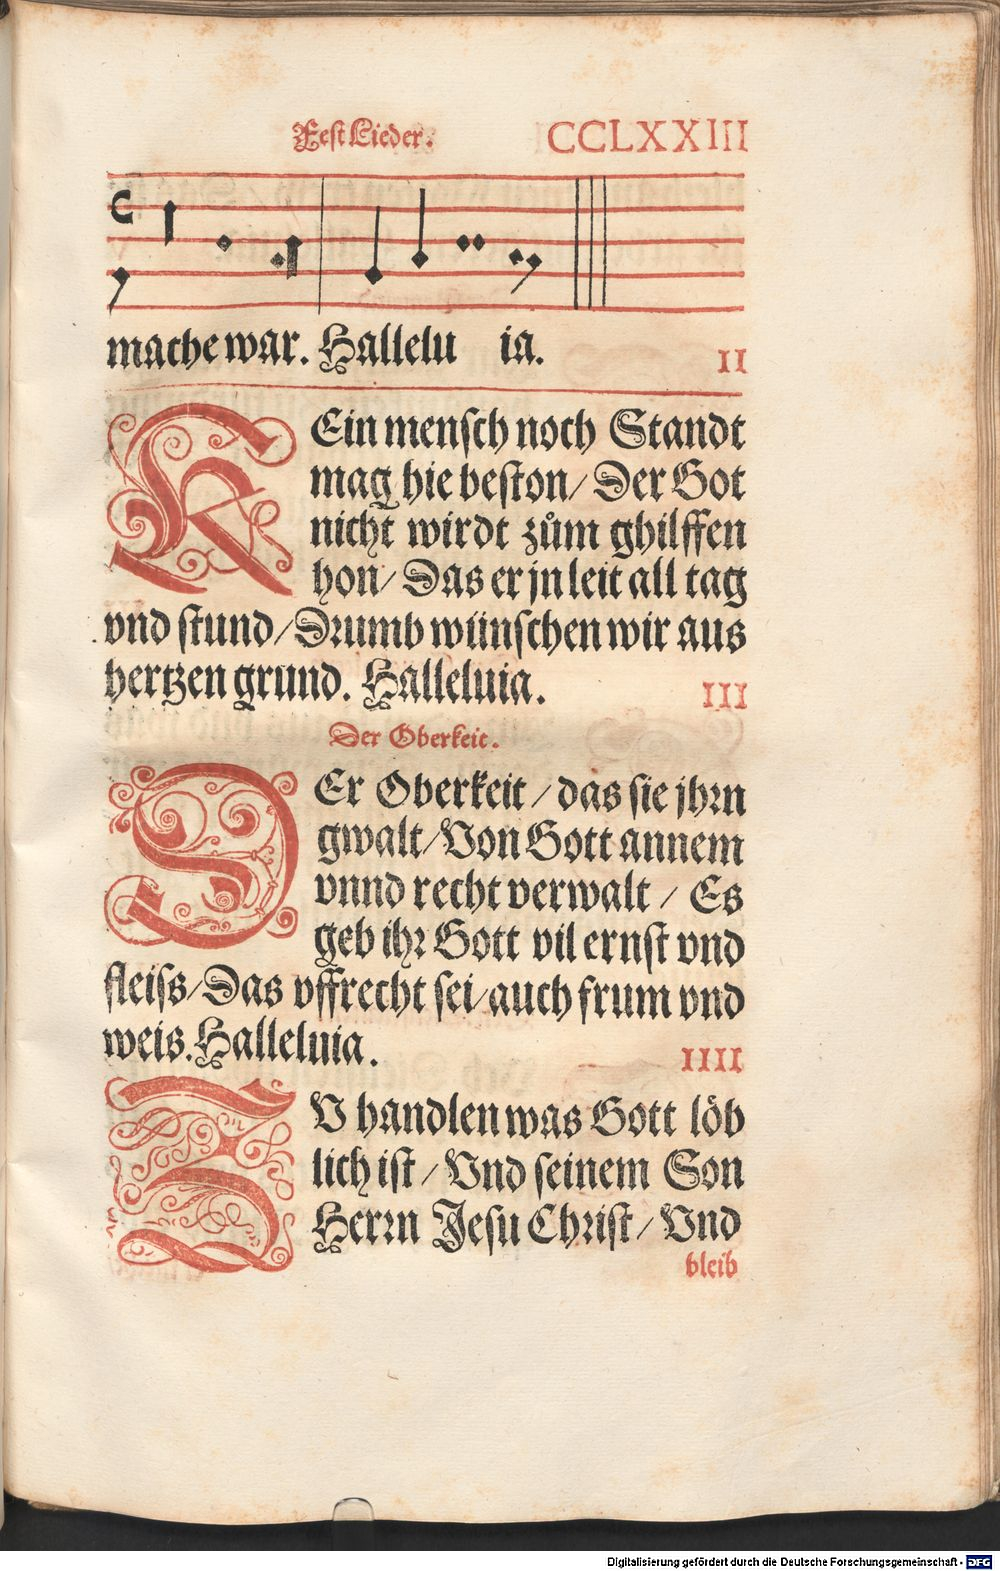 Fest Lieder. CCLXXIII
mache war. Hallelu ia.
II
KEin mensch noch Standt
mag hie beston/ Der Got
nicht wirdt zům ghilffen
hon/ Das er jn leit all tag
vnd stund/ Drumb wünschen wir aus
hertzen grund. Halleluia.
III
Der Oberkeit.
DEr Oberkeit/ das sie jhrn
gwalt/ Von Gott annem
vnnd recht verwalt/ Es
geb ihr Gott vil ernst vnd
fleiss/ Das vffrecht sei/ auch frum vnd
weis. Halleluia.
IIII
ZV handlen was Gott löb
lich ist/ Vnd seinem Son
Herrn Jesu Christ/ Vnd
bleib
Digitalisierung gefördert durch die Deutsche Forschungsgemeinschaft - DFG